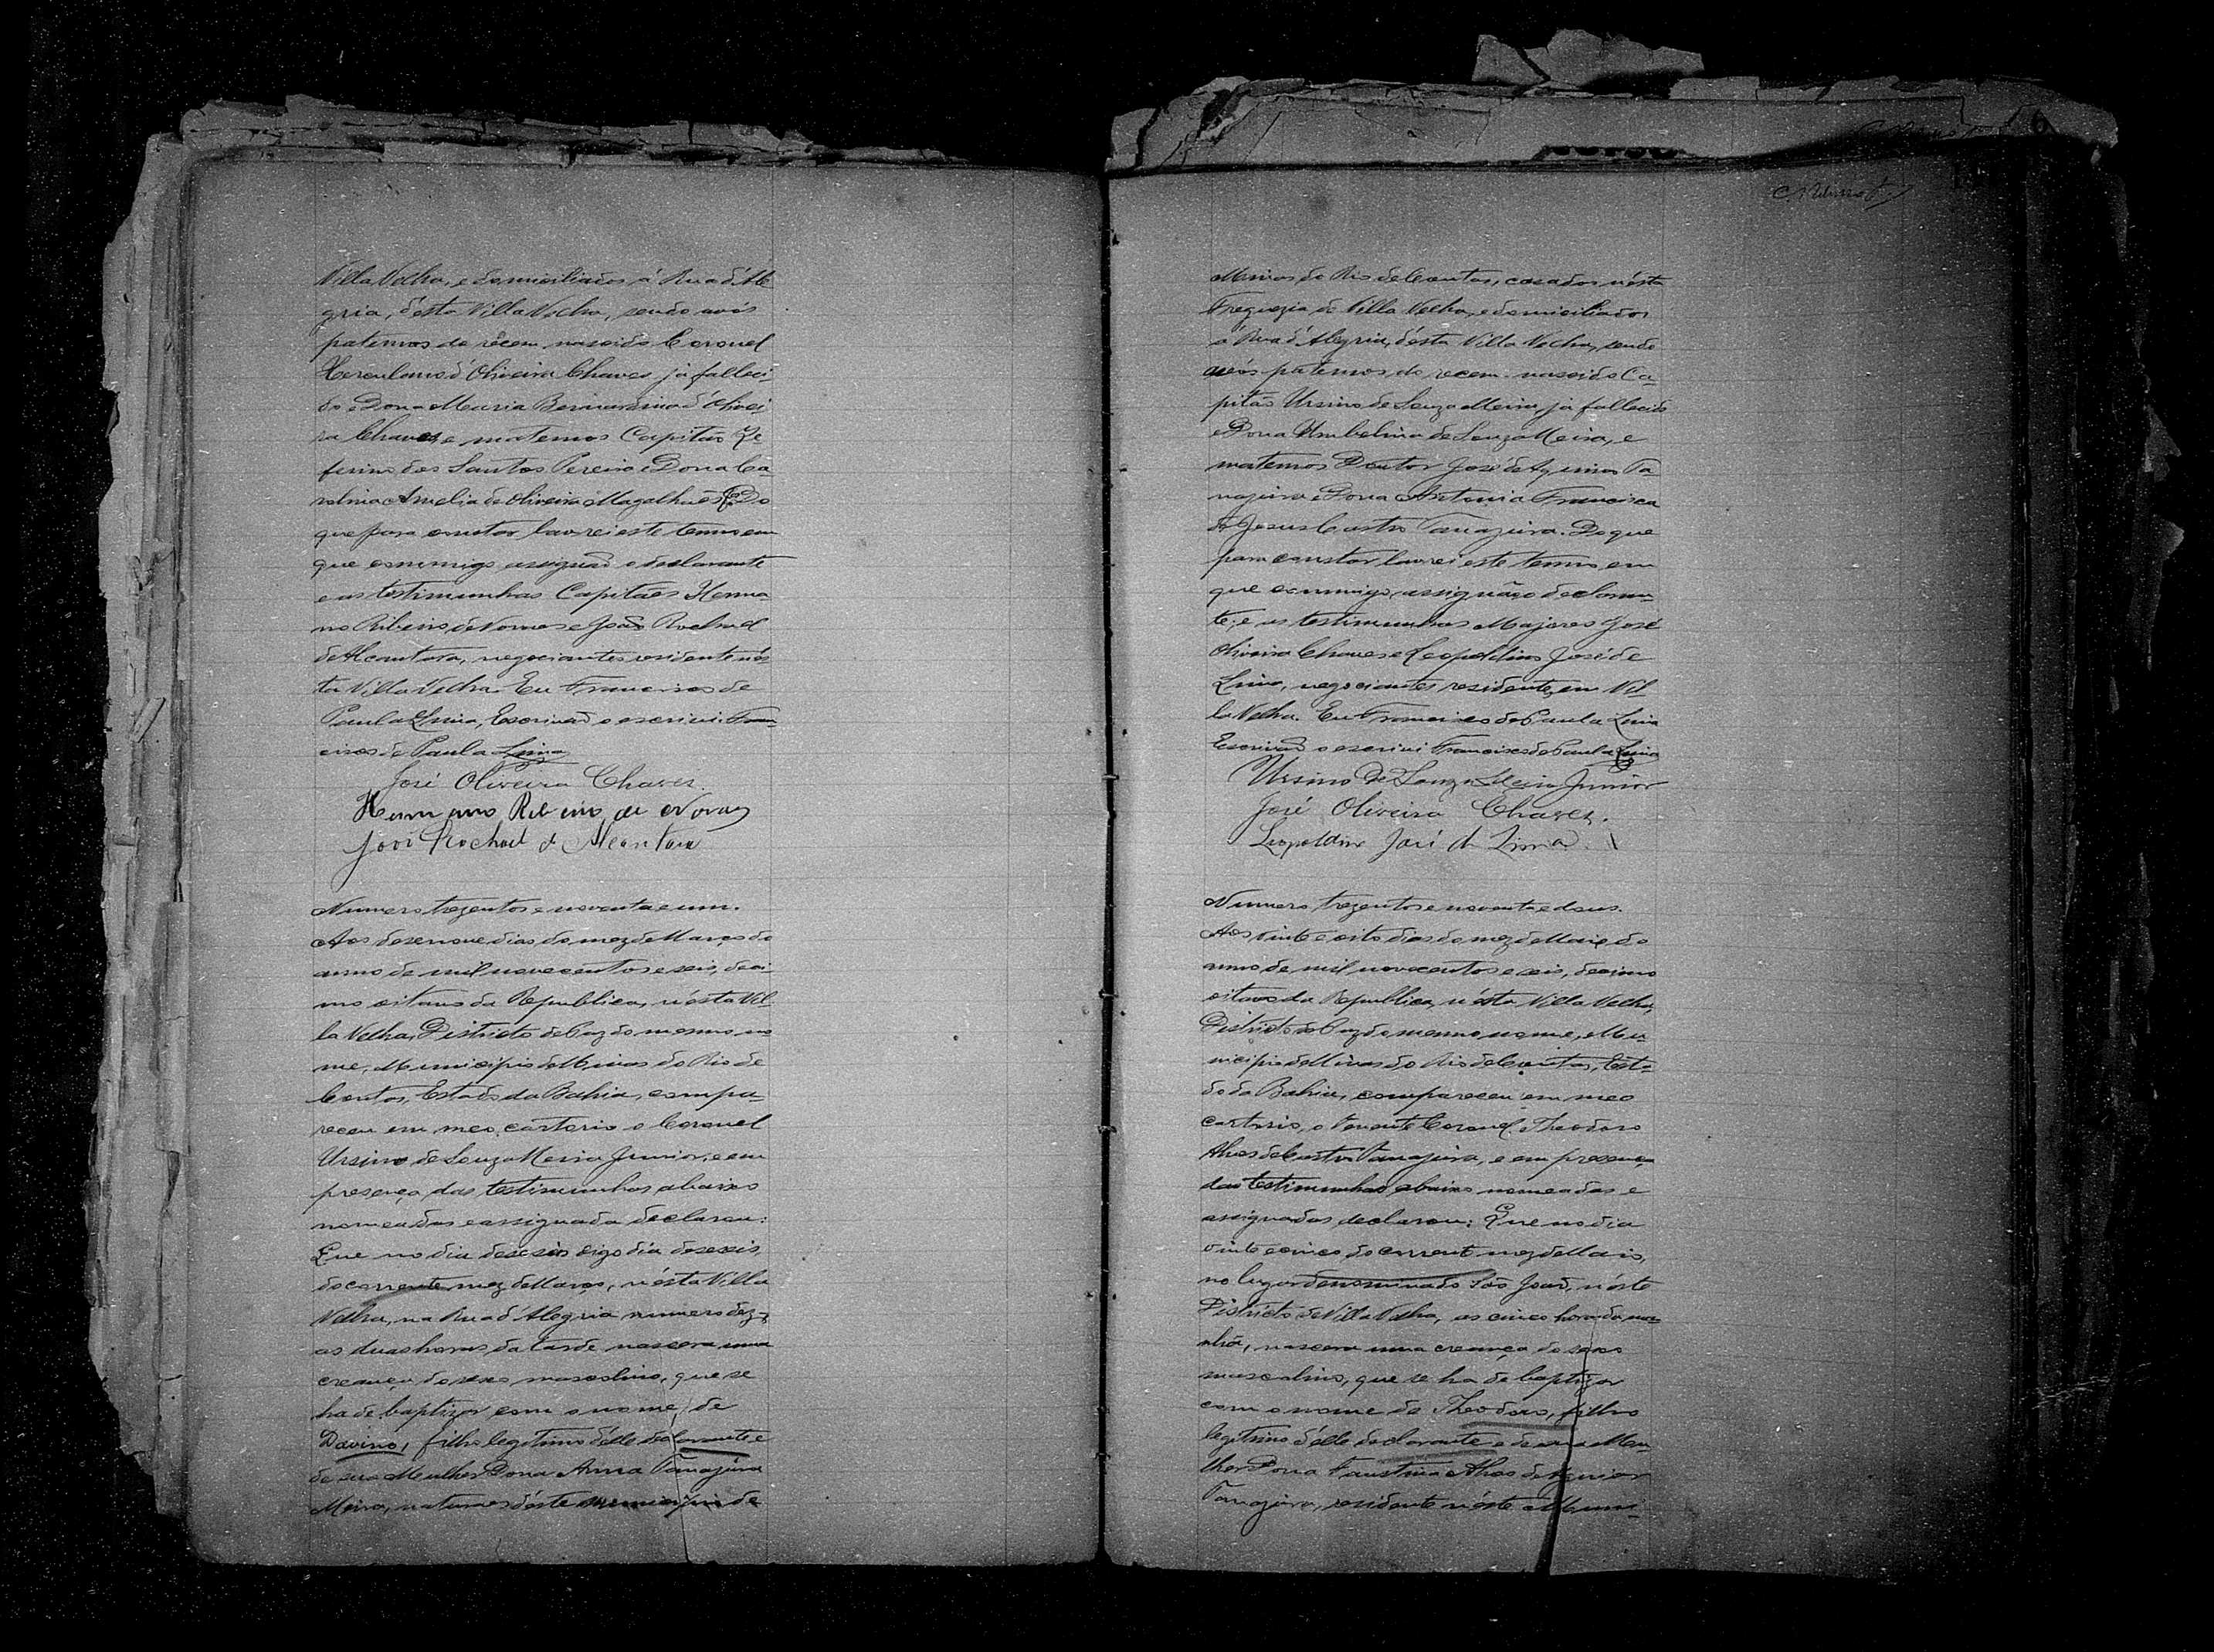 Villa Velha, e domiciliados á Rua d'Ale
gria, d'esta Villa Velha, sendo avós
paternos do recem-nascido Coronel
Herculano d'Oliveira Chaves, já falleci-
do e Dona Maria Bernardina d'Olivei
ra Chaves e maternos Capitão Ze
ferino dos Santos Pereira e Dona Ca
rolina Amelia de Oliveira Magalhães. Do
que para constar lavrei este termo em
que commigo assignaõ o declarante
e as testimunhas Capitães Herma-
no Ribeiro de Novaes e João Rochael
de Alcantara, negociantes residente nés
ta Villa Velha. Eu Francisco de
Paula Lima, Escrivaõ o escrivi. Fran
cisco de Paula Lima
José Oliveira Chaves.
Hermano Ribeiro de Novaes
João Rochael de Alcantara
Numero trezentos e noventa e um.
Aos desenove dias do mez de Março do
anno de mil novecentos e seis, deci-
mo oitavo da Republica, n'ésta Vil
la Velha, Districto de Paz do mesmo no-
me, Municipio de Minas do Rio de
Contas, Estado da Bahia, compa-
receu em meo cartorio o Coronel
Ursino de Souza Meira Junior, e em
presença das testimunhas abaixo
nomeadas e assignada declarou:
Que no dia deseseis digo dia deseseis
do corrente mez de Março, n'ésta Villa
Velha, na Rua d'Alegria numero dez,
as duas horas da tarde nascera uma
creança do sexo mascolino, que se
ha de baptizar com o nome de
Davino, filho legitimo d'élle declarante e
de sua Mulher Dona Anna Tanajura
Meira, naturaes d'éste municipio de
C. Ribeiro
Minas do Rio de Contas, casados n'ésta
Freguezia de Villa Velha, e domiciliados
á Rua d'Alegria, d'ésta Villa Velha, sendo
avós paternos do recem-nascido Ca-
pitão Ursino de Souza Meira, já fallecido
e Dona Umbelina de Souza Meira, e
maternos Doutor José de Aquino Ta
najura e Dona Antonia Francisca
de Jesus Castro Tanajura. Do que
para constar lavrei este termo em
que commigo, assignão o declaran-
te, e as testimunhas Majores José
Oliveira Chaves e Leopoldino José de
Lima, negociantes residente, em Vil-
la Velha. Eu Francisco de Paula Lima
Escrivaõ o escrivi Francisco de Paula Lima
Ursino de Souza Meira Junior
José Oliveira Chaves.
Leopoldino José de Lima.
Numero trezentos e noventa e dous.
Aos vinte e oito dias do mez de Maio do
anno de mil novecentos e seis, decimo
oitavo da Republica, n'ésta Villa Velha,
Districto de Paz do mesmo nome, Mu-
nicipio de Minas do Rio de Contas, Esta-
do da Bahia, compareceu em meo
cartorio, o Tenente Coronel Theodoro
Alves de Castro Tanajura, e em presença
das testimunhas abaixo nomeadas e
assignadas declarou: Que no dia
vinte e cinco do corrent mez de Maio,
no lugar denominado São João, n'éste
Districto de Villa Velha, as cinco horas da ma-
nhã, nascera uma creança do sexo
mascolino, que se ha de baptizar
com o nome de Theodoro, filho
legitimo d'élle declarante e de sua Mu
lher Dona Faustina Alves de
Tanajura, residente n'éste Muni-